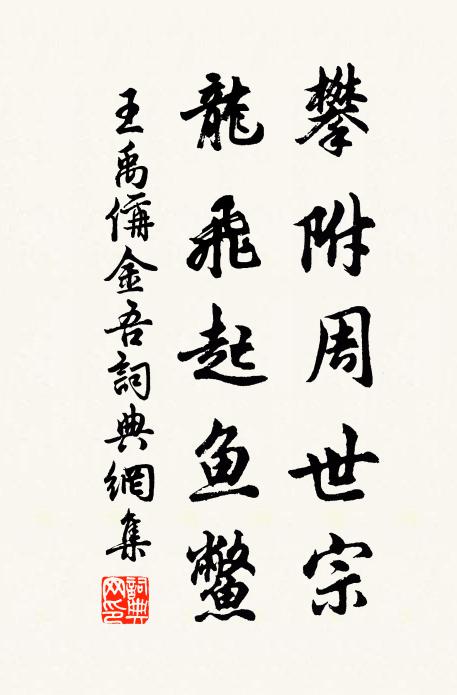 攀附周世宗
龍飛起魚鱉
王禹偁金吾詞典網集
詞典網印